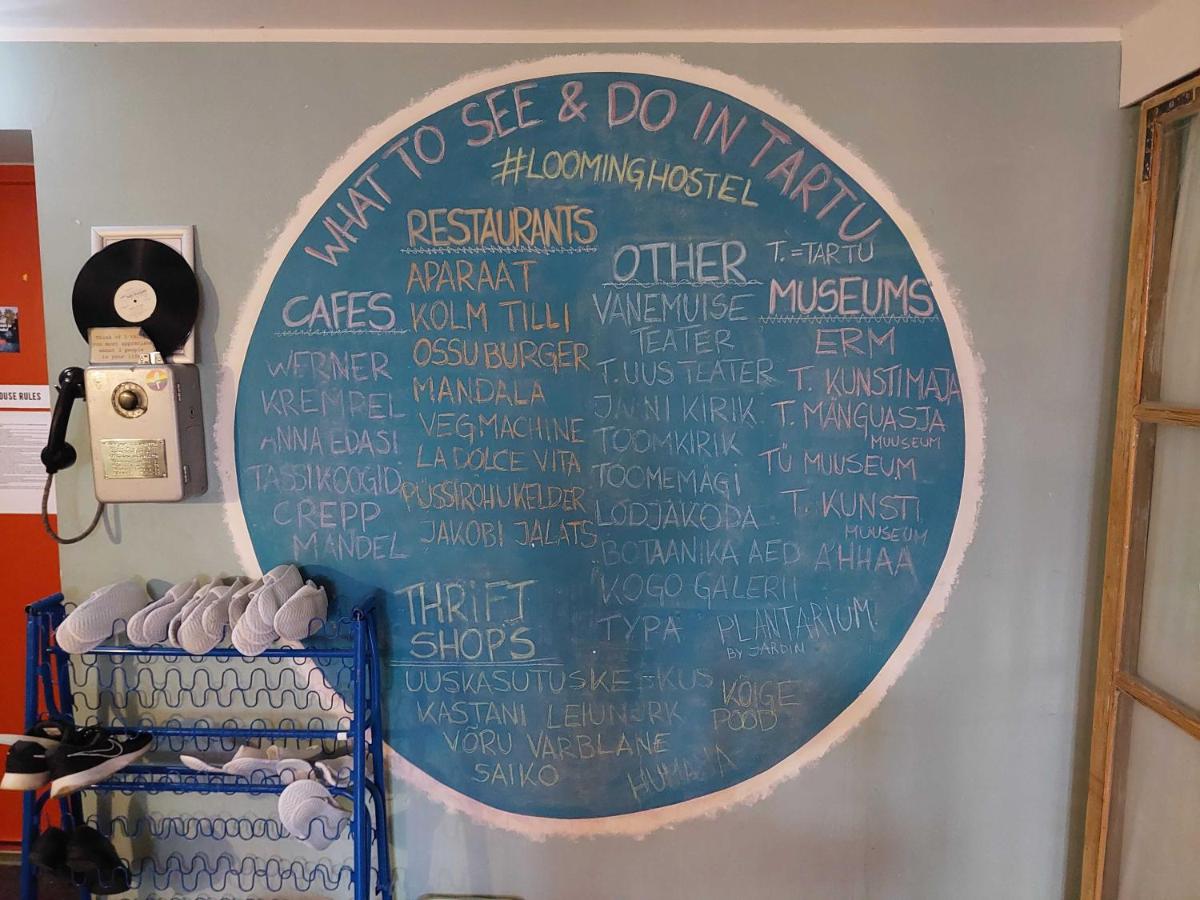 WHAT TO SEE & DO IN TARTU
#LOOMINGHOSTEL
CAFES
WERNER
KREMPEL
ANNA EDASI
TASSIKOOGID
CREPP
MANDEL
RESTAURANTS
APARAAT
KOLM TILLI
OSSU BURGER
MANDALA
VEGMACHINE
LA DOLCE VITA
PÜSSIROHUKELDER
JAKOBI JALATS
THRIFT
SHOPS
UUSKASUTUSKESKUS
KASTANI LEIUNURK
VÕRU VARBLANE
SAIKO
HUMANA
KÕIGE
POOD
OTHER
VANEMUISE
TEATER
T. UUS TEATER
JAANI KIRIK
TOOMKIRIK
TOOMEMÄGI
LODJAKODA
BOTAANIKA AED
KOGO GALERII
TYPA
PLANTARIUM
BY JARDIN
T. = TARTU
MUSEUMS
ERM
T. KUNSTIMAJA
T. MÄNGUASJA
MUUSEUM
TÜ MUUSEUM
T. KUNSTI
MUUSEUM
AHHAA
OUSE RULES